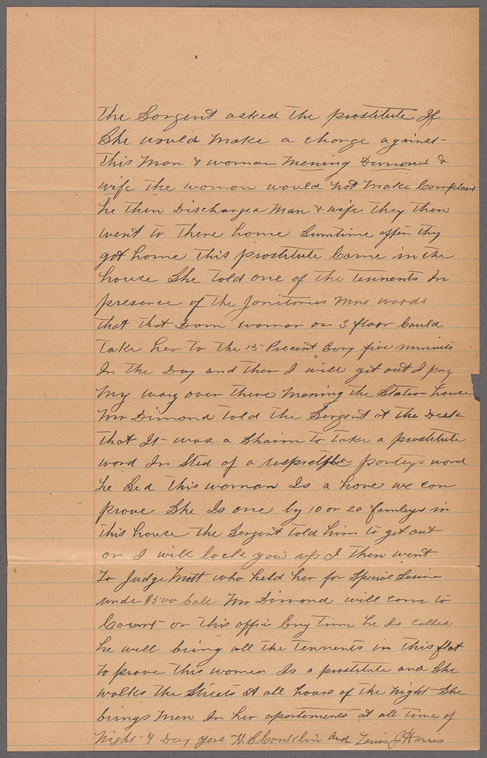 The Sorgent asked The prostitute If
She would Make a charge against
This Man & woman Mening Dimond &
wife The woman would not Make Complaint
he then Discharged Man & wife They then
went to There home Sumtime after they
got home This prostitute Came in the
house She Told one of the Tennents In
presence of the Janitoress Mrs woods
that that Dam woman on 3 floor Could
Take her To the 15 Precent Evry five minuits
In the Day and then I will get out I pay
My way over There Maning the Station house
Mr Dimond Told the Sergent at the Desk
That It was a Shaim to Take a prostitute
word In Sted of a porteys word
he Sed This woman Is a hore we can
prove She Is one by 10 or 20 famleys in
This house The Sergent Told him to get out
or I will lock you up I Then went
To Judge Mott who held her for Special
unde $500 bale Mr Dimond will come to
Court or this offic Eny time he Is called
he will bring all the Tennents in This flat
to prove This women Is a prostitute and She
walks the Streets at all hours of the Night She
brings Men In her apartements at all time of
Night & Day yors H. S Conklin and Louis J Harris